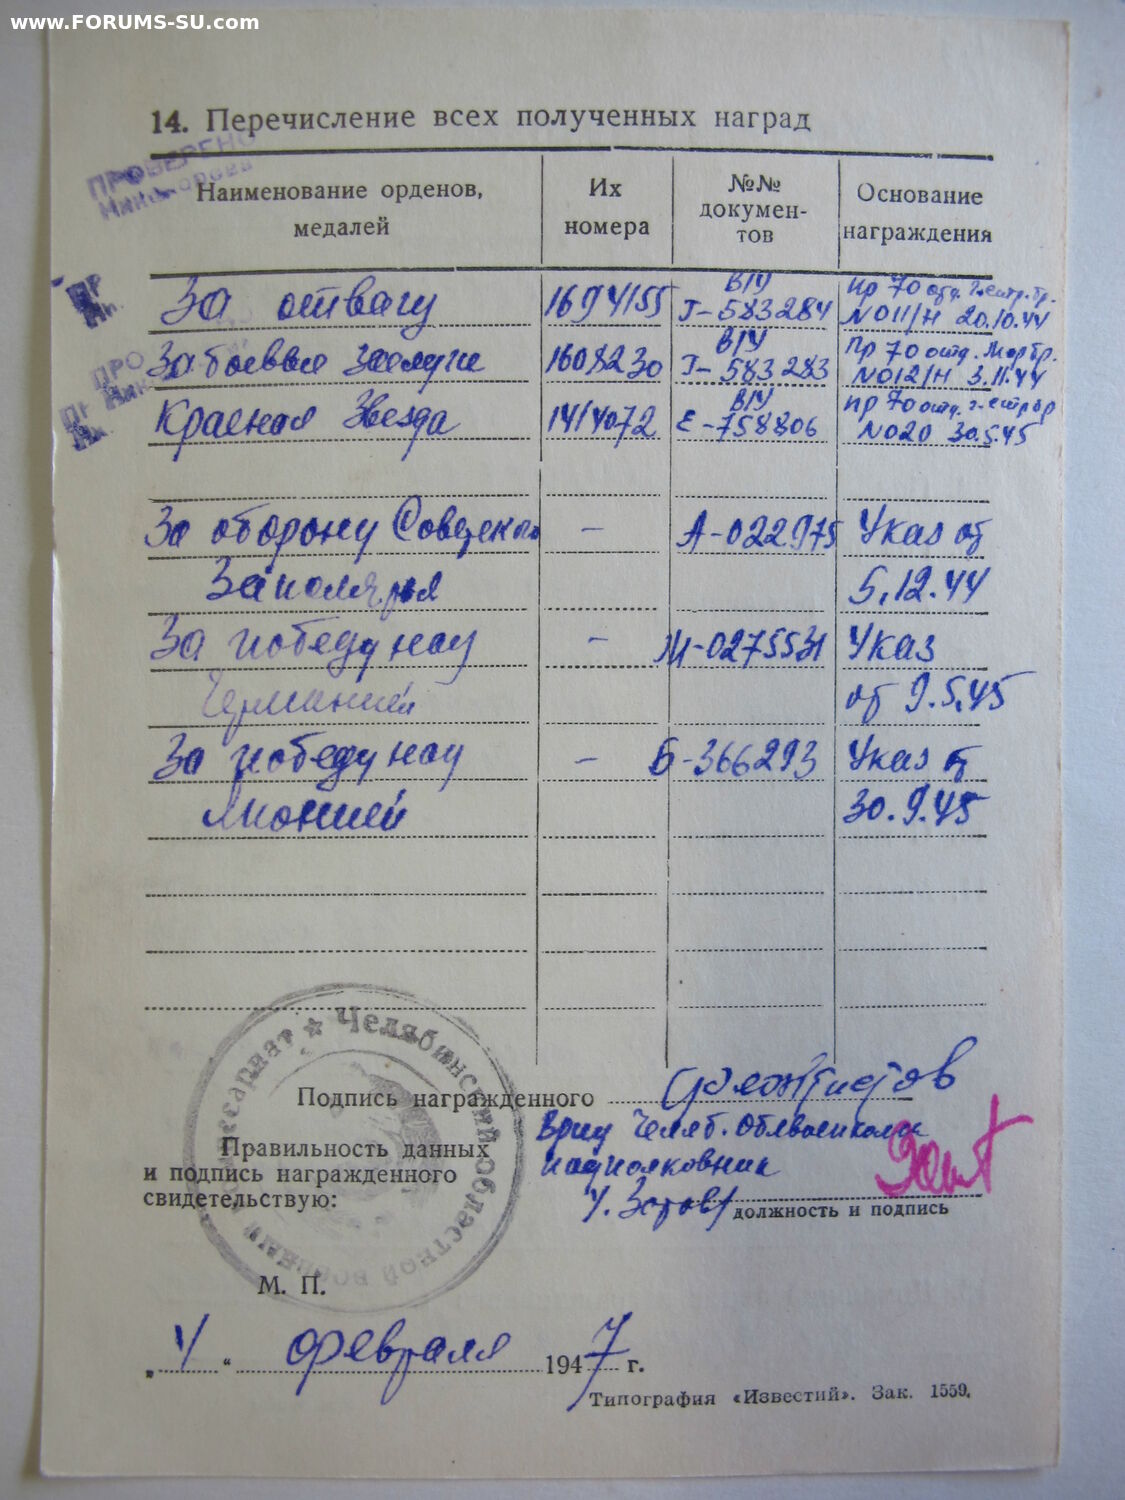 www.FORUMS-SU.com
14. Перечисление всех полученных наград
ПРОВЕРЕНО
Наименование орденов, медалей
Их номера
№№ докумен-тов
Основание награждения
За отвагу 1694155 В/У Г-583284 Пр 70 отд. № 011/Н 20.10.44
За боевые заслуги 1608230 В/У Г-583283 Пр 70 отд. Мор бр. № 012/Н 3.11.44
Красная Звезда 1414072 В/У Е-758806 пр 70 отд. № 020 30.5.45
За оборону Советского – А-022975 Указ от
Заполярья 5.12.44
За победу над – М-0275531 Указ
Германией от 9.5.45
За победу над – Б-366293 Указ от
Японией 30.9.45
Подпись награжденного
Врид Челяб. Облвоенкома
Правильность данных
и подпись награженного
свидетельствую:
подполковник
должность и подпись
Челябинский областной военный комиссариат
М. П.
„ 4 “ февраля 1947 г.
Типография «Известий». Зак. 1559.